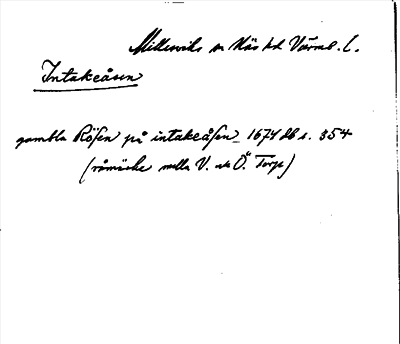 Millesviks sn Näs hd Värml. l.
Intakeåsen
gambla Röfen på intakeåfen 1674 db s. 354
(råmärke mella V. och Ö. Torp)